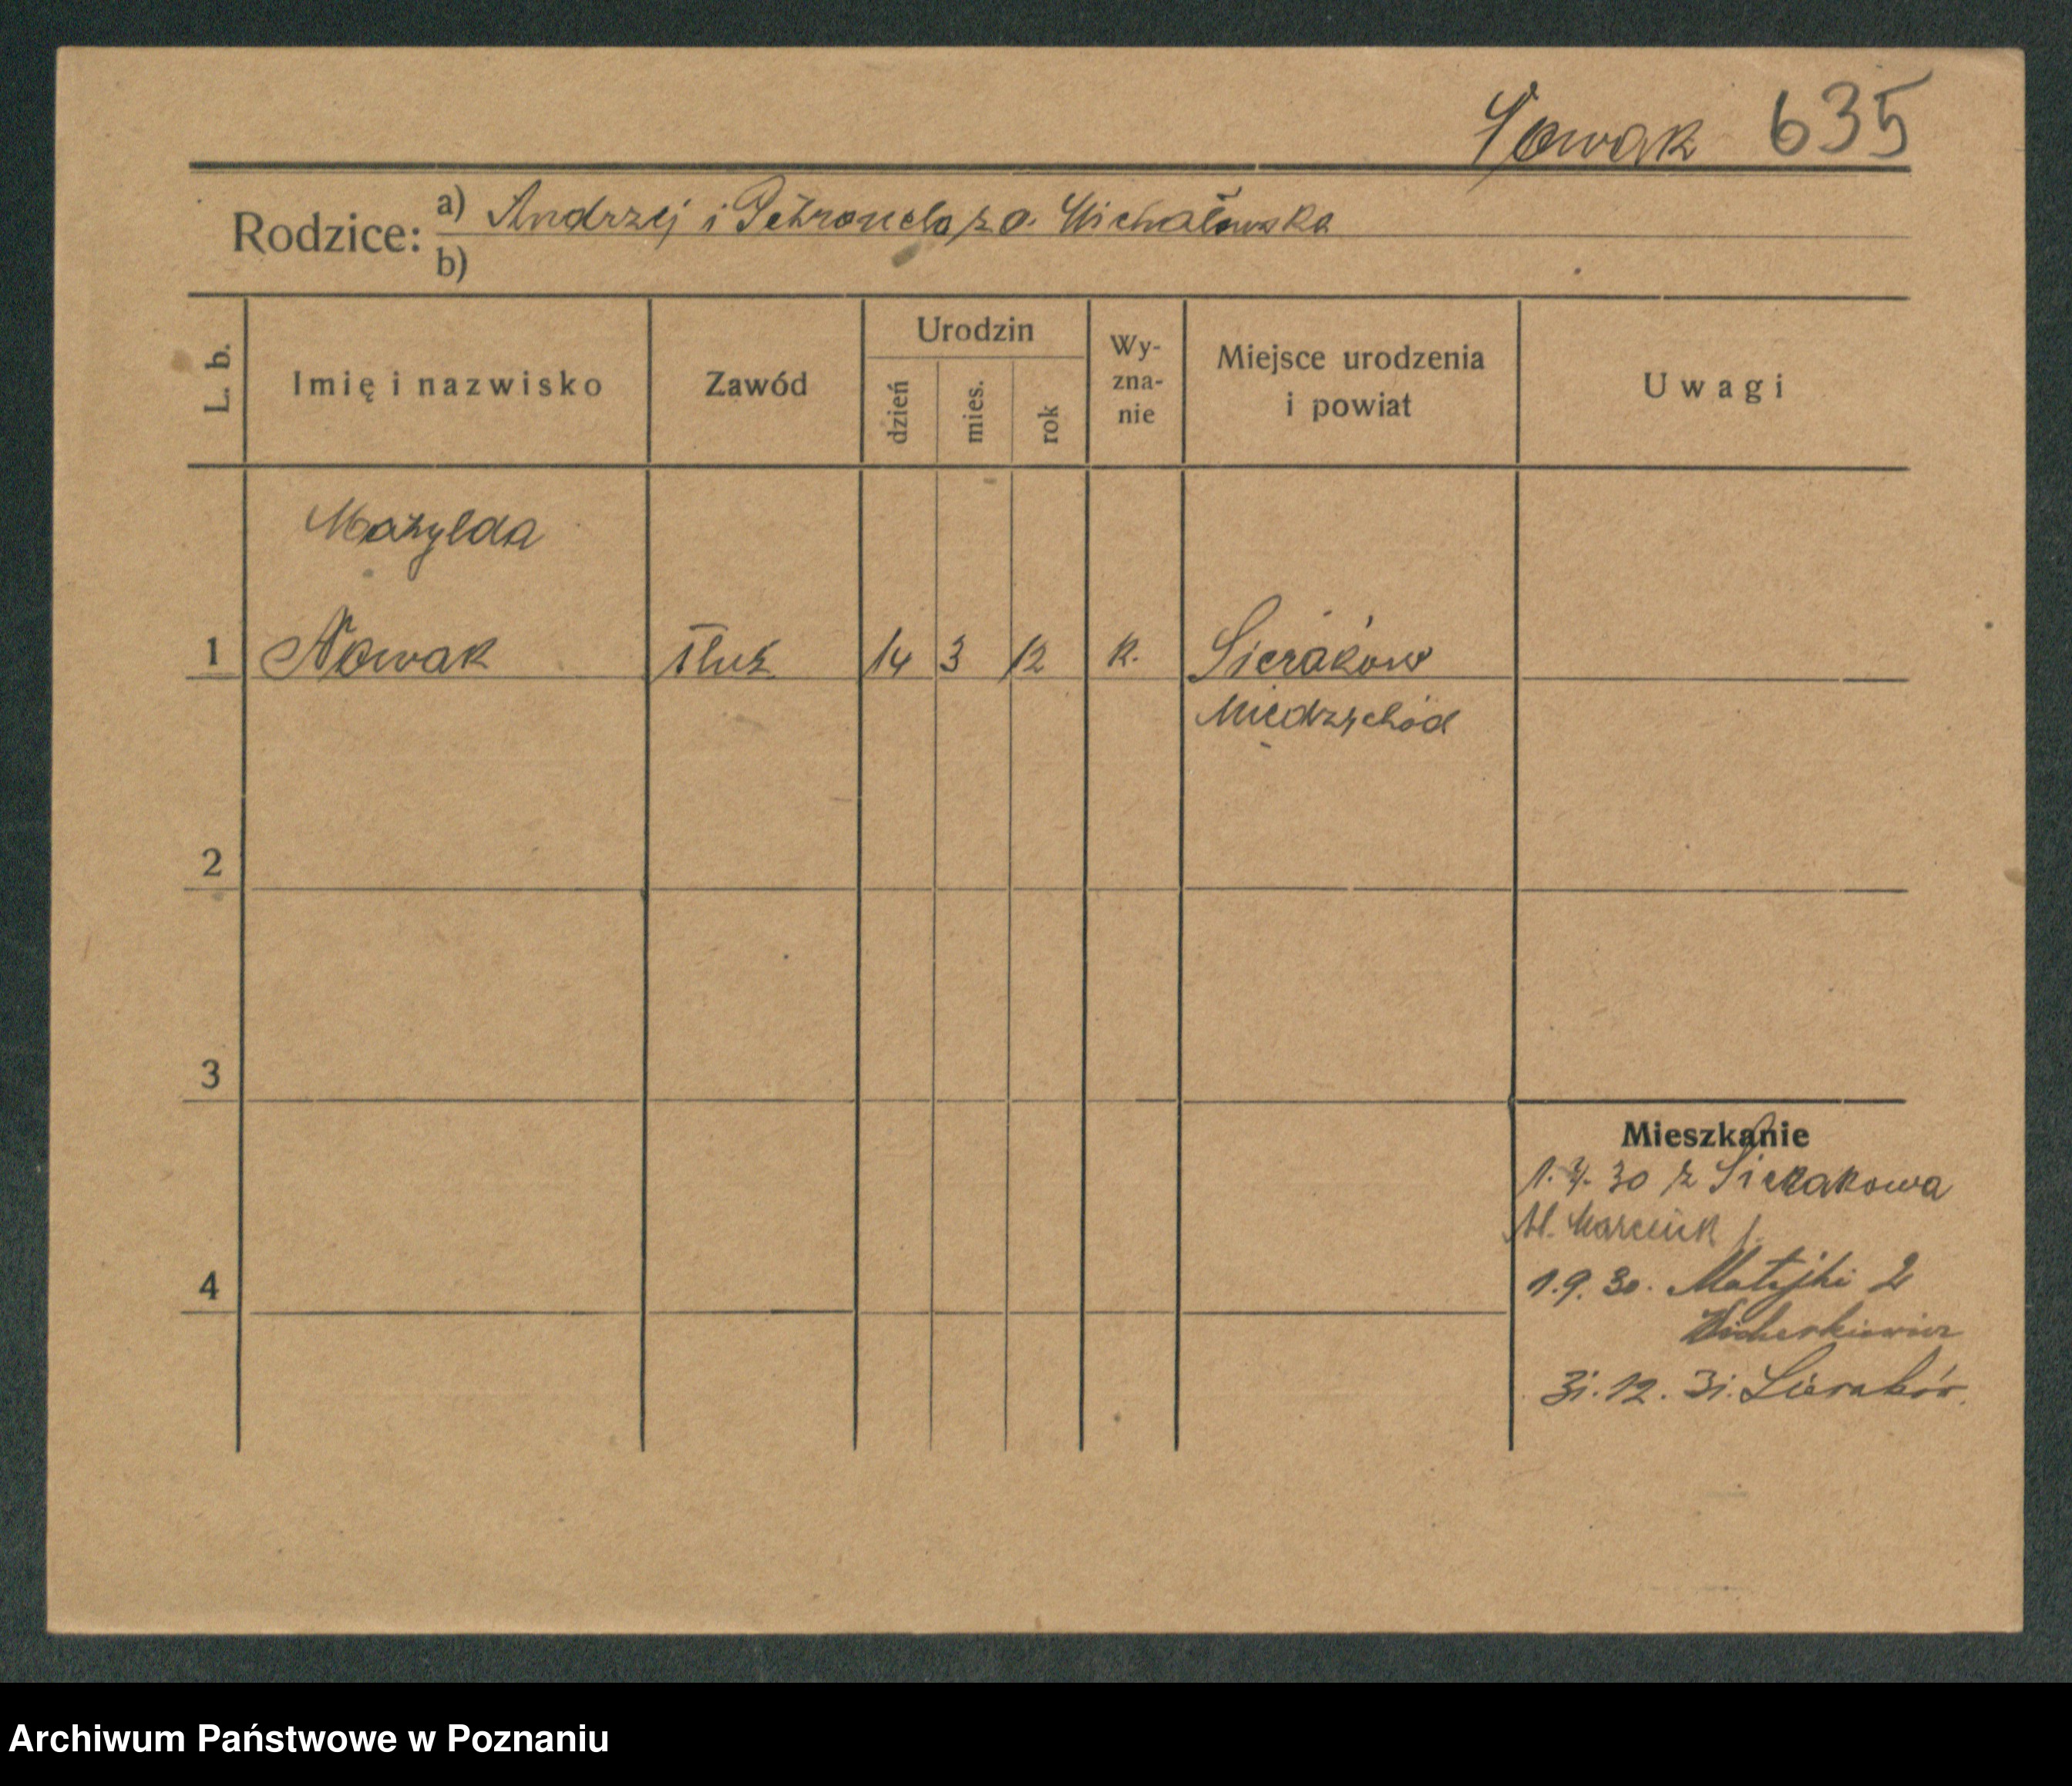 Nowak 635
Rodzice: a) Andrzej i Petronela z d. Michałowska
b)
L. b. Imię i nazwisko Zawód Urodzin dzień mies. rok Wy-zna-nie Miejsce urodzenia i powiat Uwagi
Matylda
1 Nowak służ 14 3 12 k. Sieraków
Międzychód
2
3
Mieszkanie
1. 4. 30 z Sierakowa
4
1.9.30. Matejki 2
31.12.31. Sieraków.
Archiwum Państwowe w Poznaniu